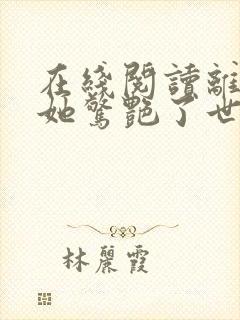 在綫閱讀離
她驚艷了世
林麗霞